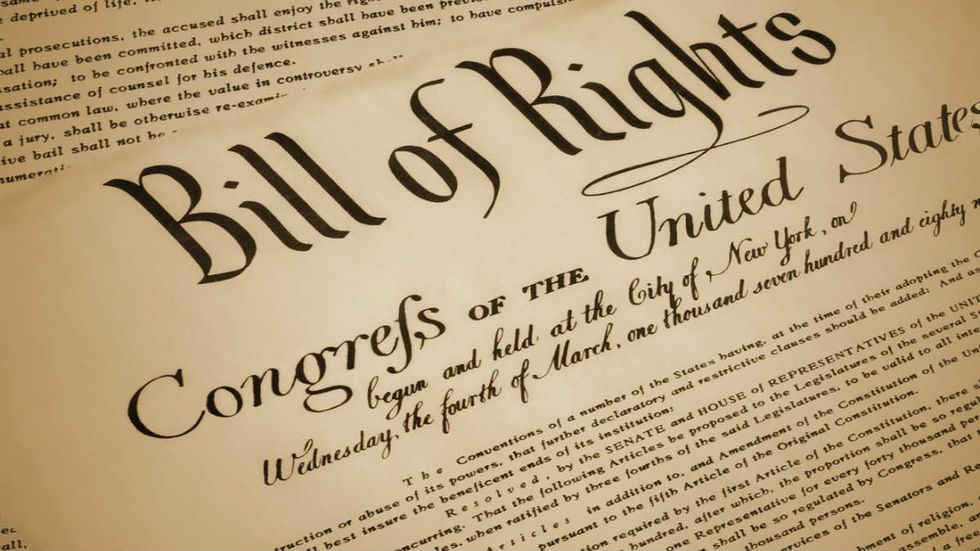 same
deprived of life,
al prosecutions, the accused shall enjoy the
all have been committed, which district shall have been
sation; to be confronted with the witnesses against him; to have
ssistance of counsel for his defence.
at common law, where the value in controversy
a jury, shall be otherwise
ive bail shall not be
Bill of Rights
Congreſs OF THE United States
begun and held at the City of New York, on
Wednesday, the fourth of March, one thousand seven hundred and eighty
The Conventions of a number of the States having, at the time of their adopting the
ruction or abuse of its powers, that further declaratory and restrictive clauses should be added: And
best insure the beneficent ends of its institution:
Resolved, by the SENATE and HOUSE of REPRESENTATIVES of the
concurring. That the following Articles be proposed to the Legislatures of the several
when ratified by three fourths of the said Legislatures, to be valid to all
Articles in addition to, and Amendment of the Constitution of the
pursuant to the fifth Article of the Original Constitution.
required by the first Article of the Constitution, there
hundred, after which, the proportion shall be so
one Representative for every forty thousand
shall be so regulated by Congress, that
thousand persons.
of the Senators and
of religion,
assemble,